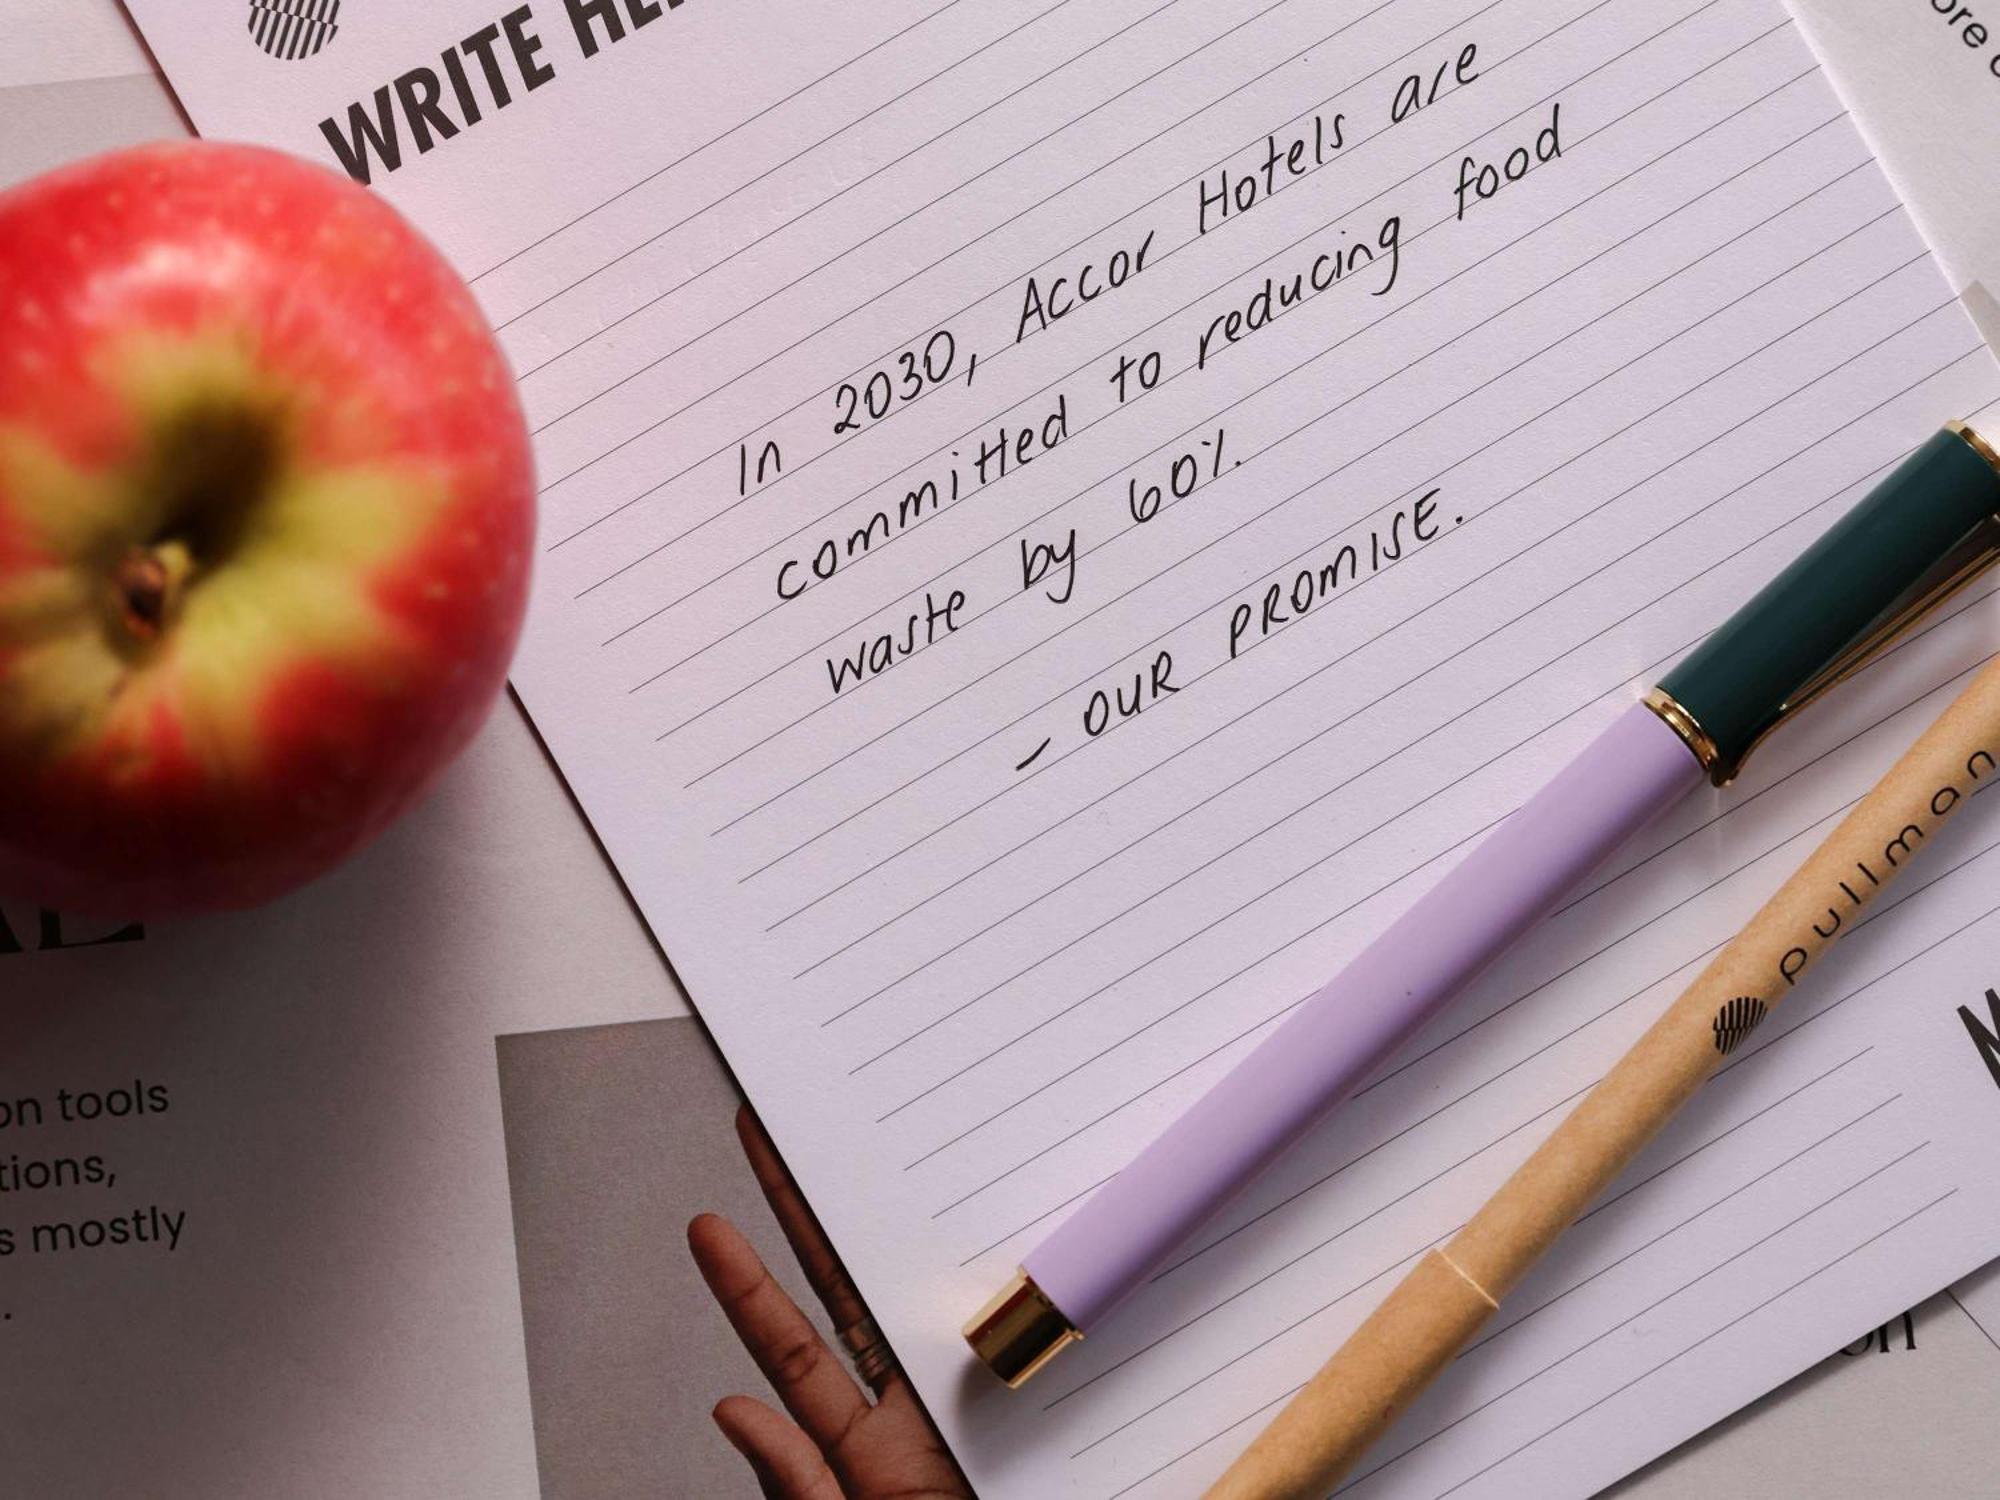 WRITE
In 2030, Accor Hotels are
committed to reducing food
waste by 60%.
– OUR PROMISE.
pullman
on tools
tions,
s mostly
.
ore
on